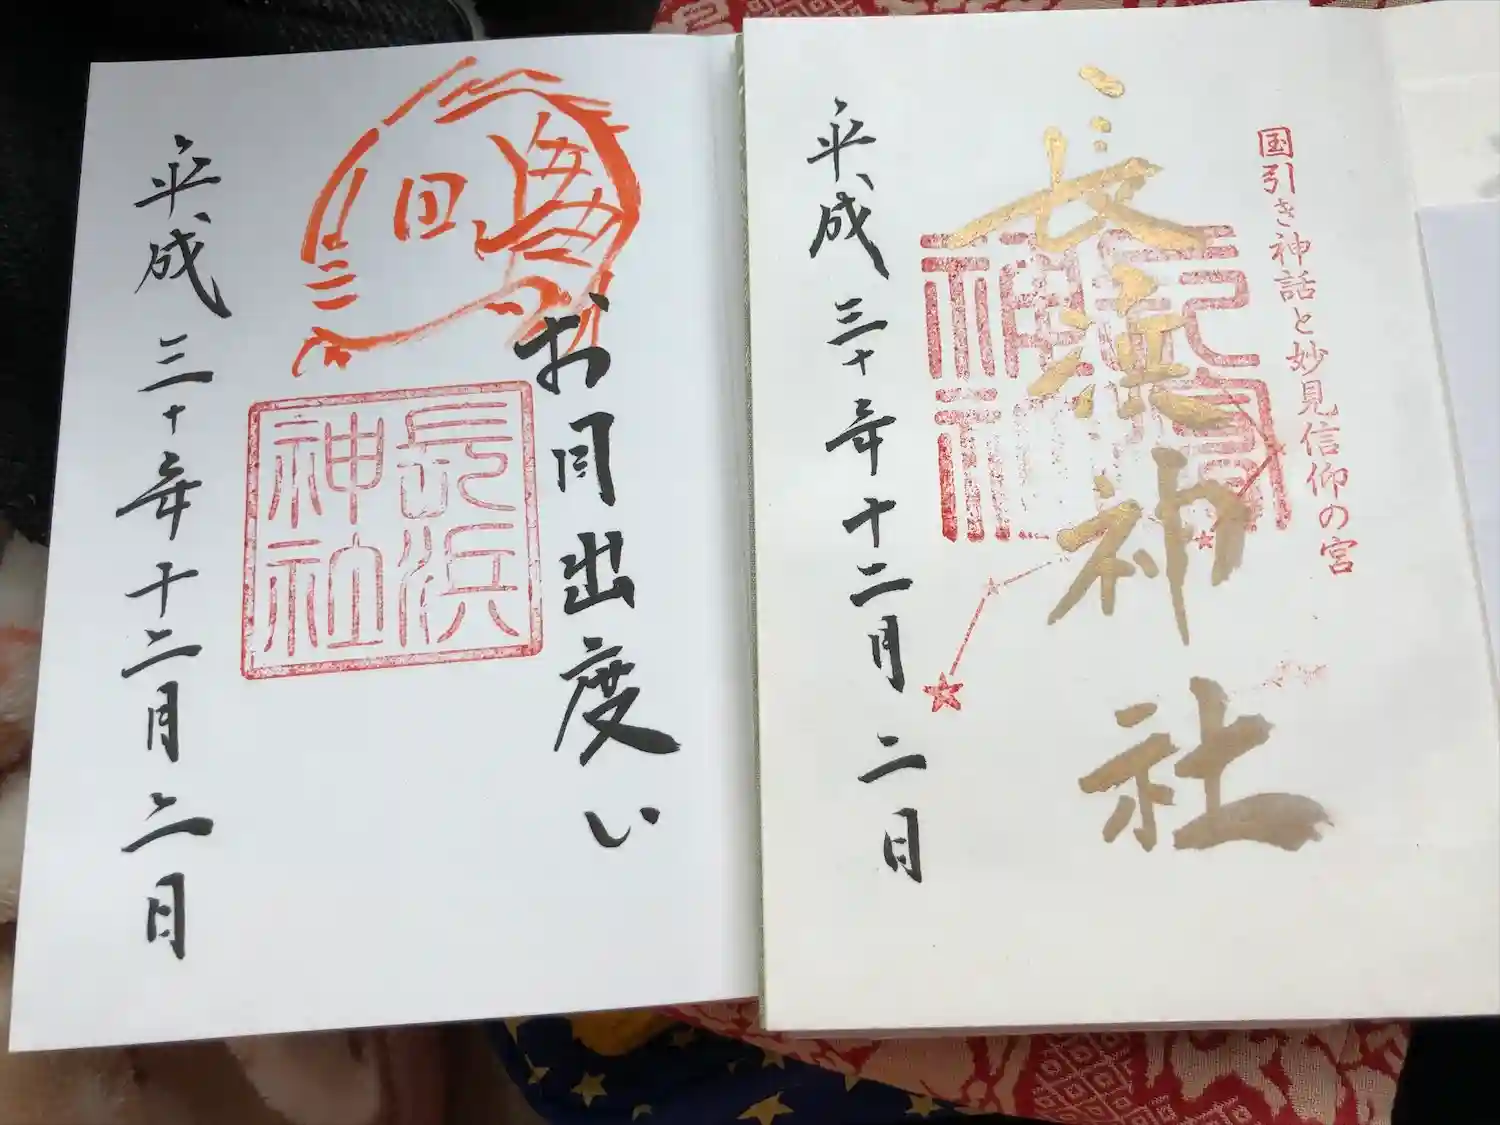 国引き神話と妙見信仰の宮
長浜神社
平成三十年十二月二日
お目出度い
長浜
神社
平成三十年十二月二日